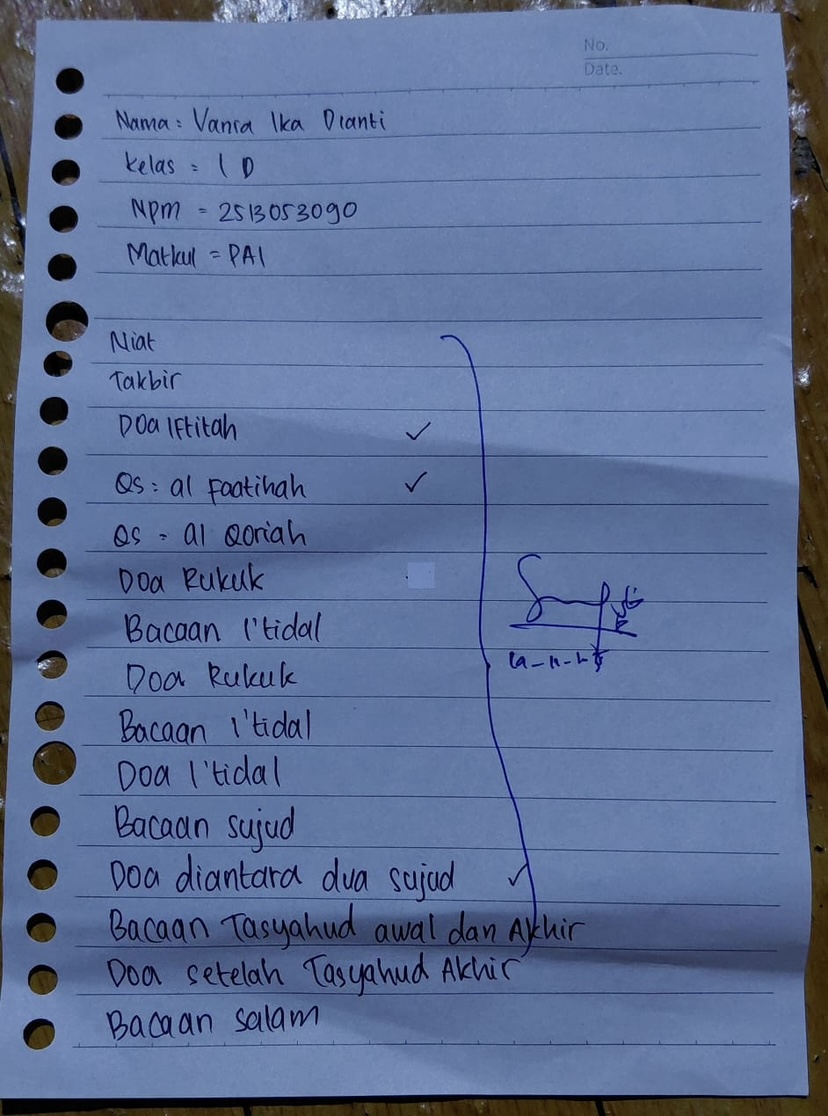 No.
Date.
Nama : Vanra Ika Dianti
Kelas = 1 D
NPM = 2513053090
Matkul = PAI
Niat
Takbir
Doa Iftitah ✓
Qs : al Faatihah ✓
Qs = al Qoriah
Doa Rukuk
Bacaan I'tidal
Doa Rukuk
Bacaan I'tidal
Doa I'tidal
Bacaan sujud
Doa diantara dua sujud ✓
Bacaan Tasyahud awal dan Akhir
Doa setelah Tasyahud Akhir
Bacaan salam